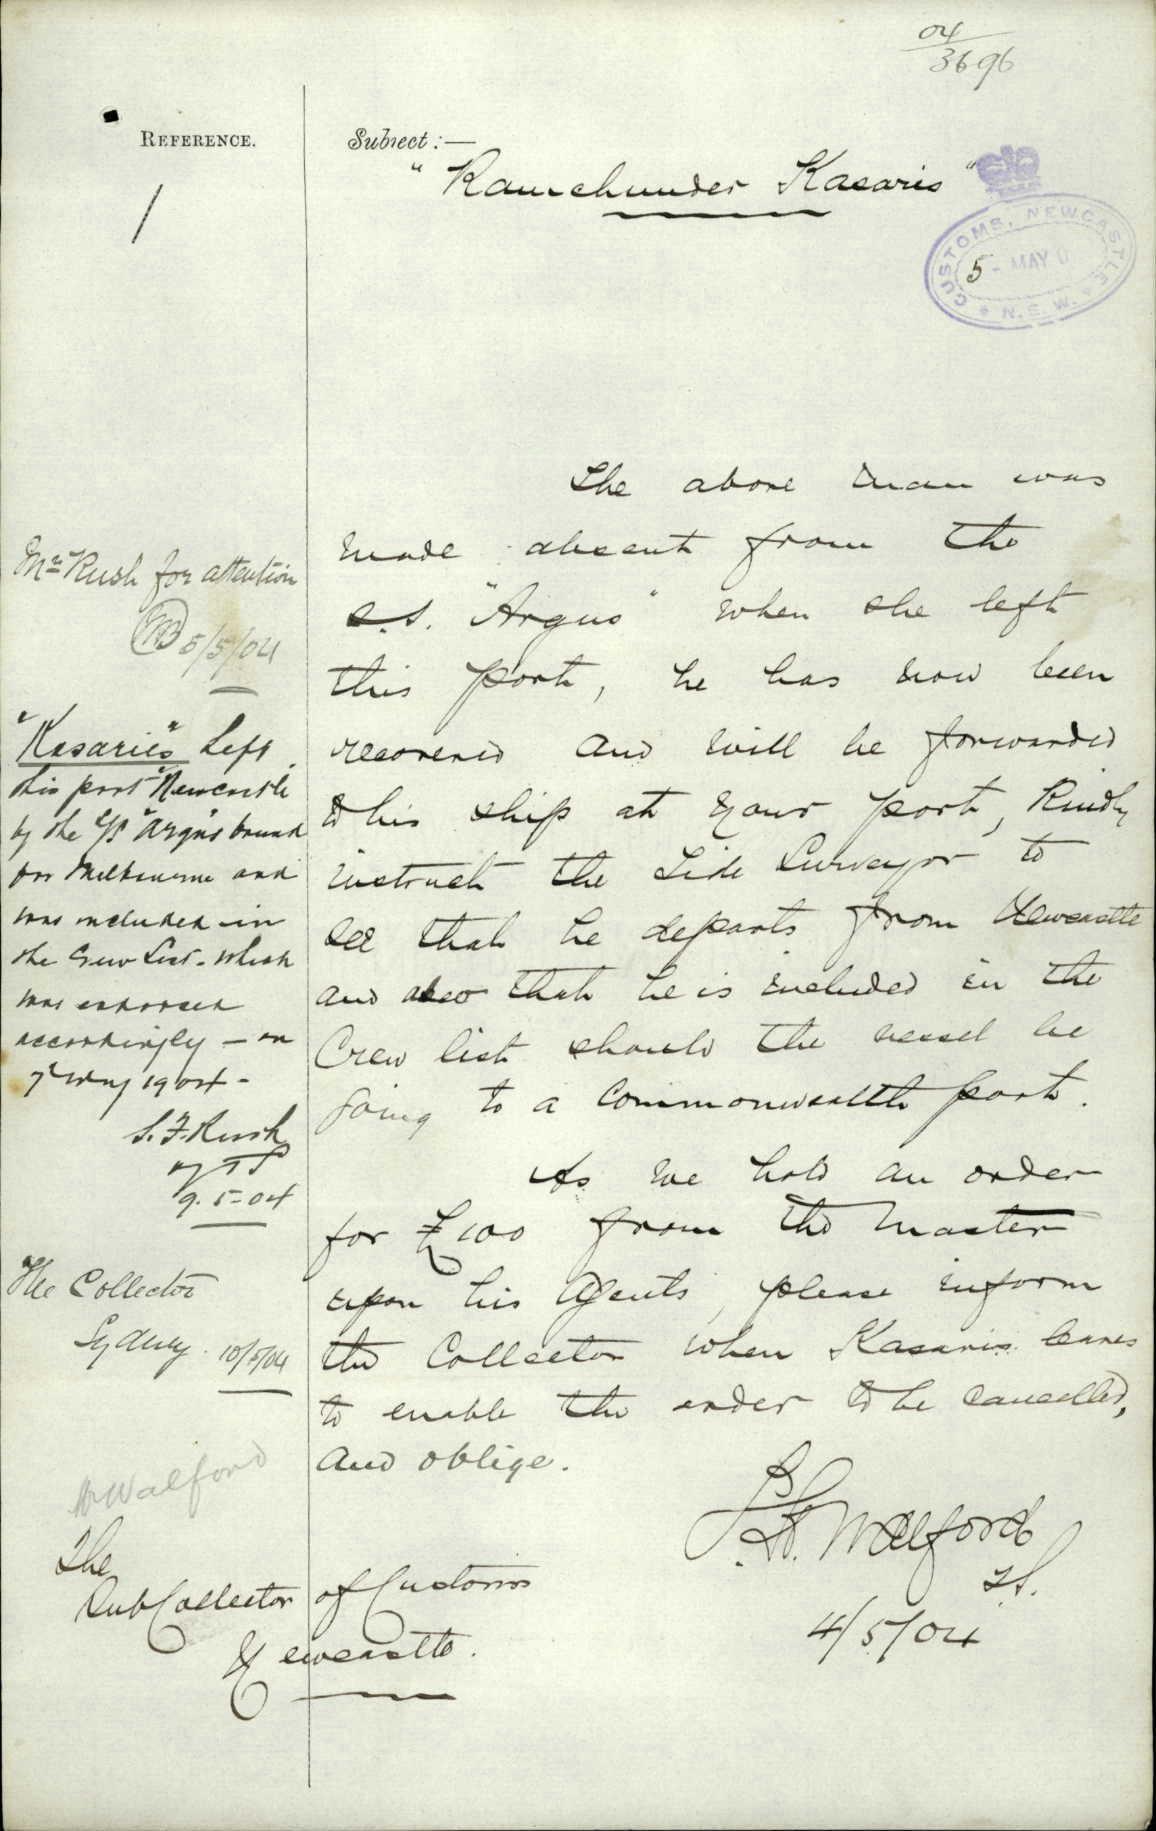 04
3696
REFERENCE.
Subject:—
1
"Ramchunder Kasaris"
CUSTOMS, NEWCASTLE N.S.W.
5 - MAY 0
The above man was
made absent from the
s.s. "Argus" when she left
this port, he has now been
recovered and will be forwarded
to his ship at your port, Kindly
instruct the Tide Surveyor to
see that he departs from Newcastle
and also that he is included in the
Crew list should the vessel be
going to a Commonwealth port.
As we hold an order
for £100 from the Master
upon his Agents, please inform
the Collector when Kasaris leaves
to enable the order to be cancelled,
and oblige.
Walford
T.S.
4/5/04
The
Sub Collector of Customs
Newcastle.
Mr Rush for attention
5/5/04
"Kasaries" Left
this port Newcastle
by the S/S "Argus" bound
for Melbourne and
was included in
the Crew List - which
was endorsed
accordingly - on
7th May 1904 -
S. F. Rush
9.5-04
The Collector
Sydney. 10/5/04
Mr Walford